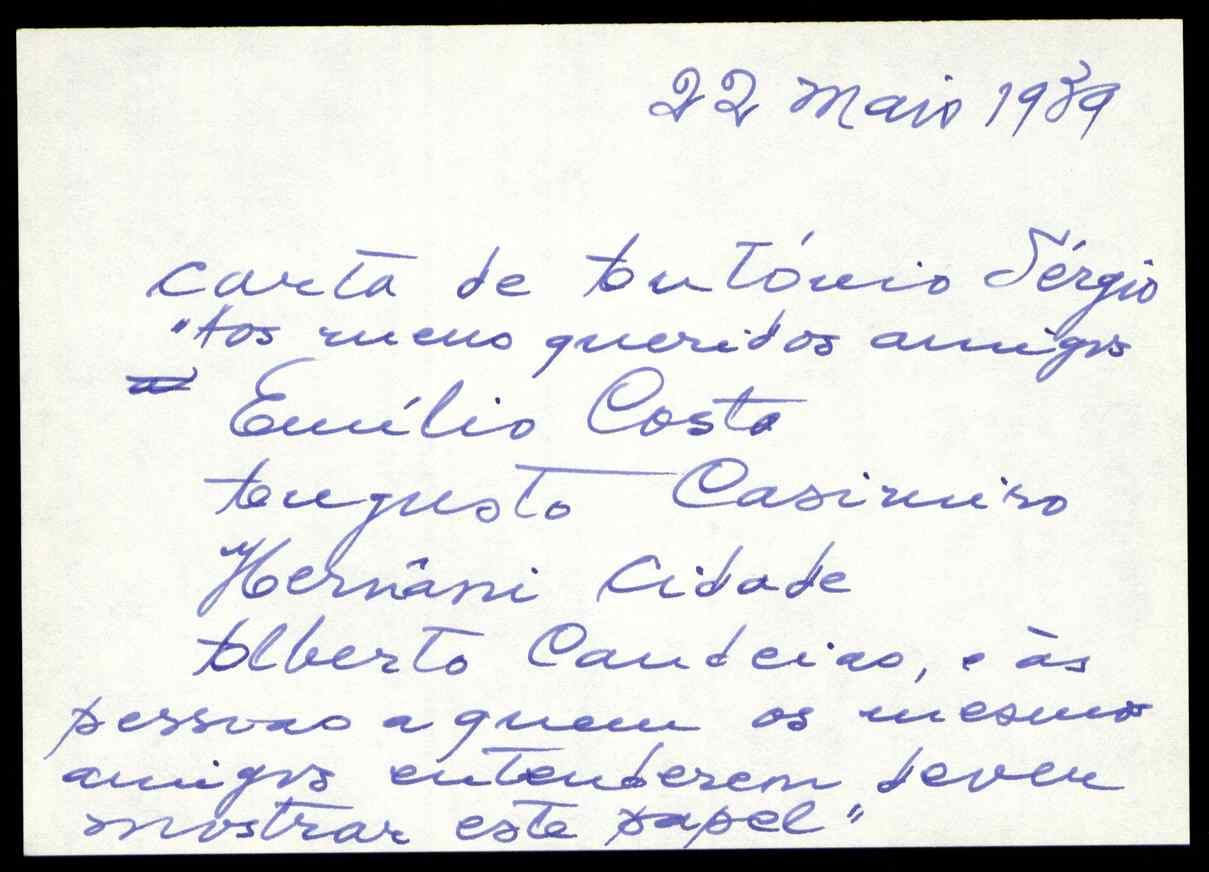 22 Maio 1939
Carta de António Sérgio
"Aos meus queridos amigos
Emílio Costa
Augusto Casimiro
Hernâni Cidade
Alberto Candeias, e às
pessoas a quem os mesmos
amigos entenderem dever
mostrar este papel"